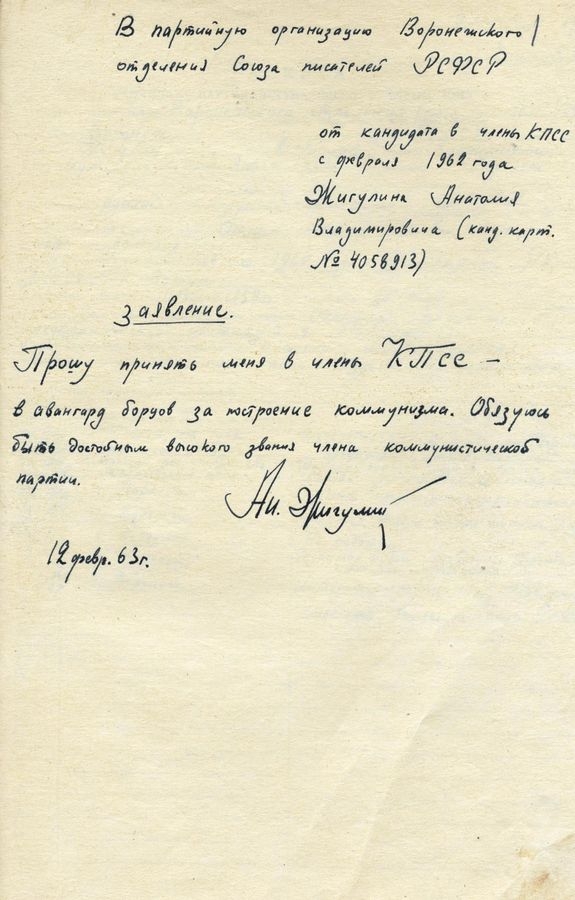 В партийную организацию Воронежского
отделения Союза писателей РСФСР
от кандидата в члены КПСС
с февраля 1962 года
Жигулина Анатолия
Владимировича (канд. карт.
№ 4058913)
заявление.
Прошу принять меня в члены КПСС –
в авангард борцов за построение коммунизма. Обязуюсь
быть достойным высокого звания члена коммунистической
партии.
Ан. Жигулин
12 февр. 63 г.